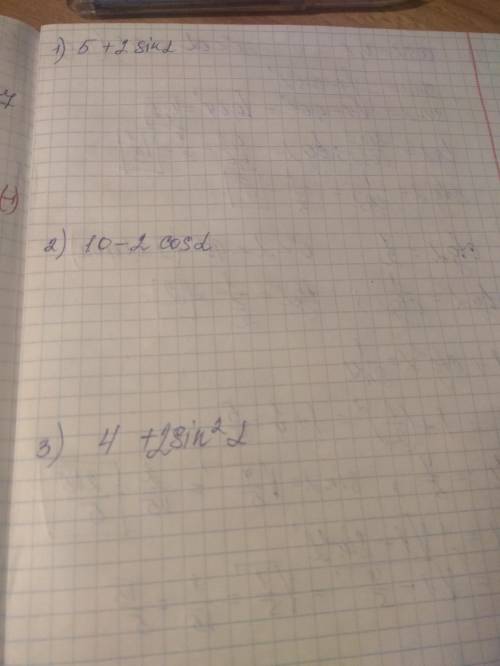 1) 5 + 2 sin α
2) 10 - 2 cos α
3) 4 + 2 sin² α